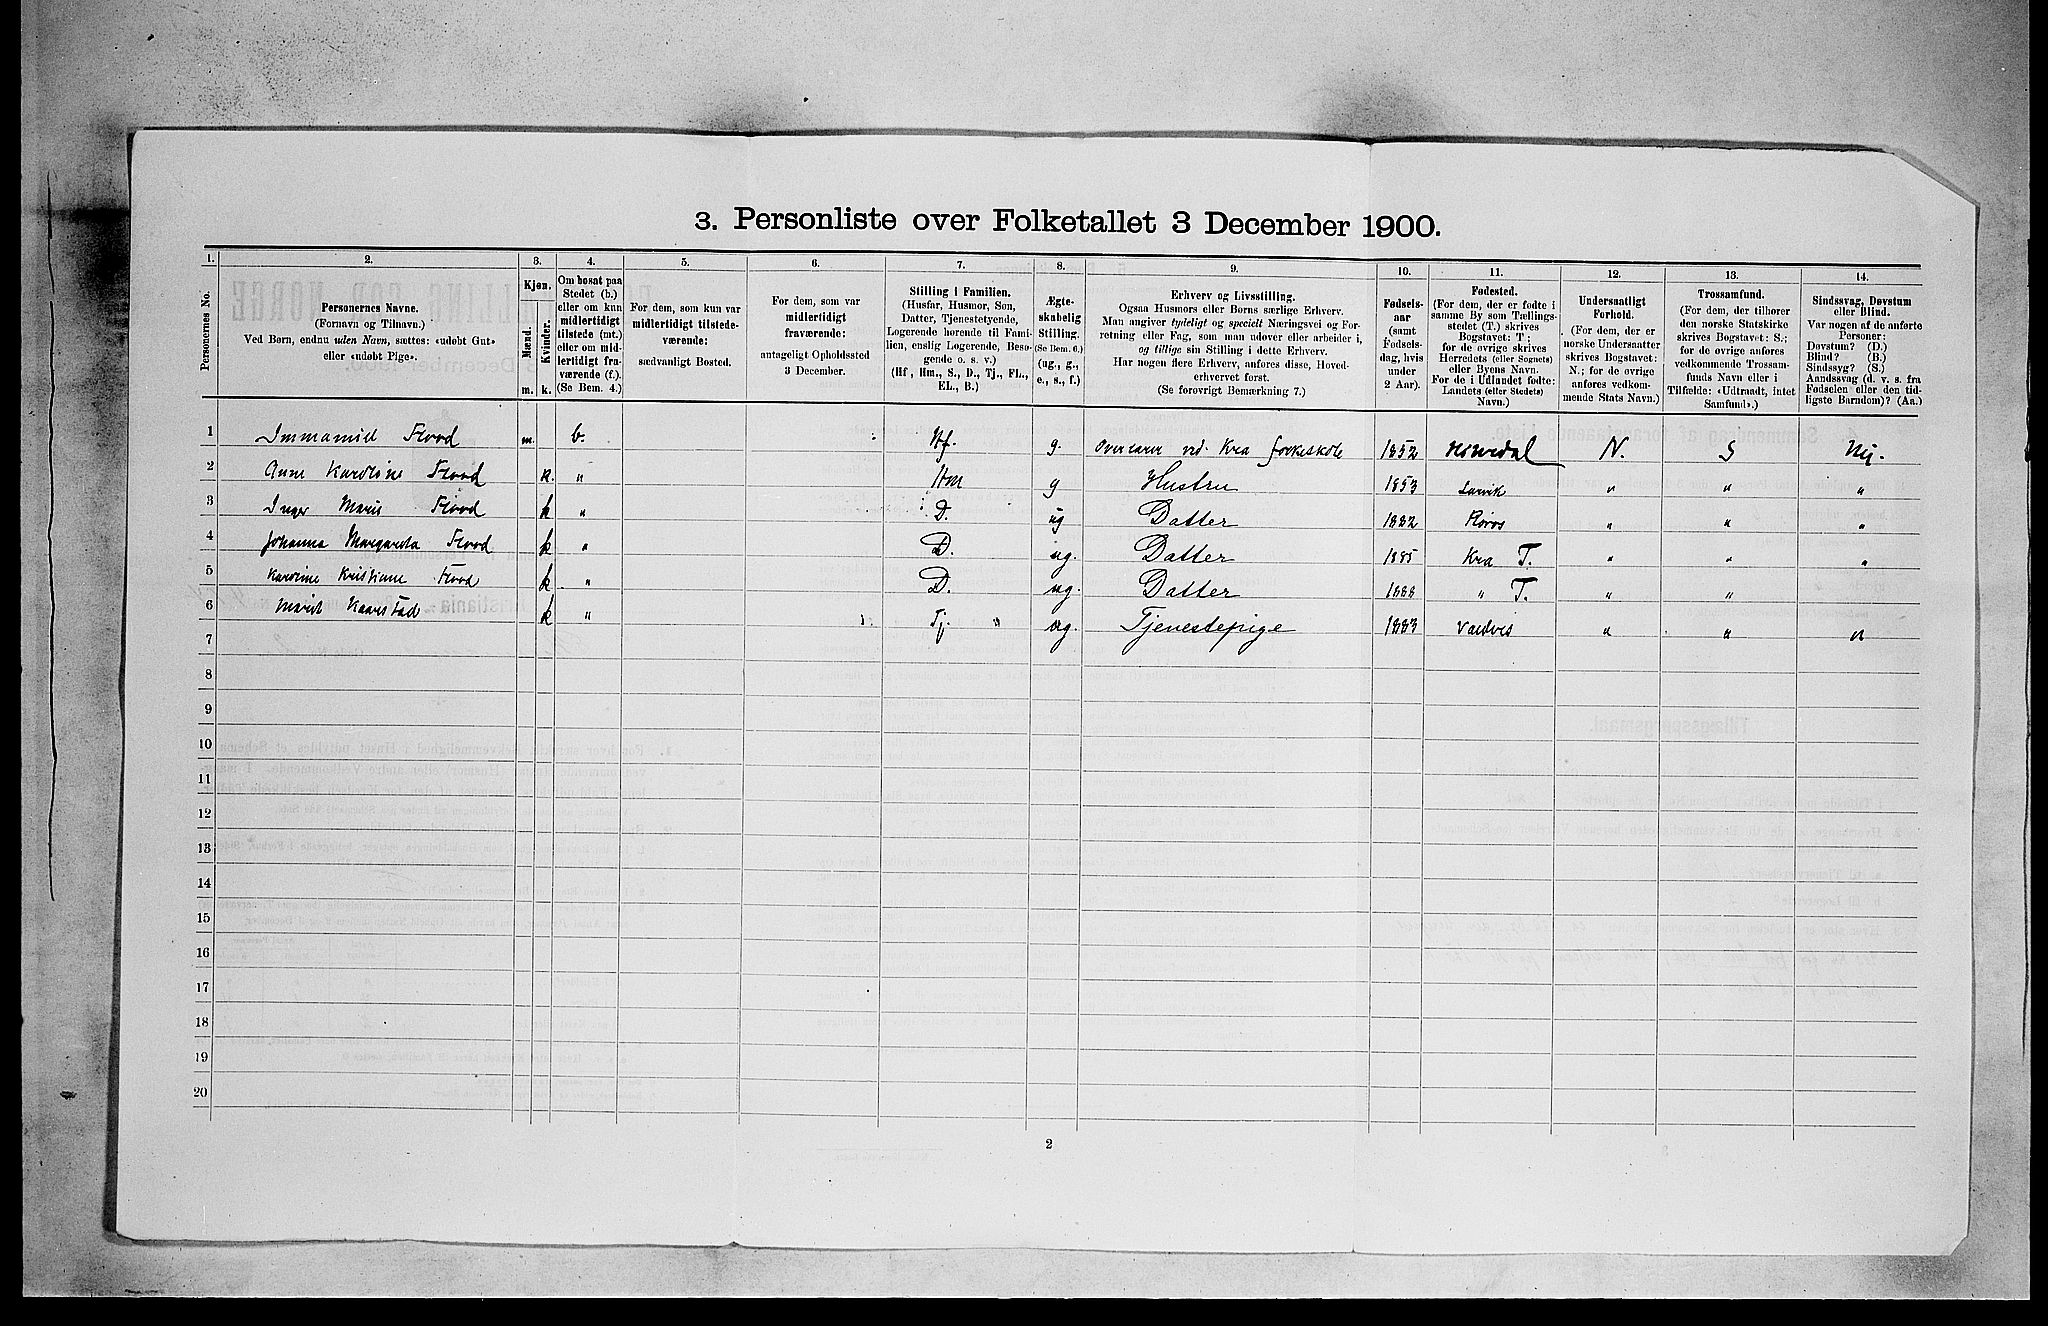 3. Personliste over Folketallet 3 December 1900.
1. 2. 3. 4. 5. 6. 7. 8. 9. 10. 11. 12. 13. 14.
Personernes No.
Personernes Navne.
(Fornavn og Tilnavn.)
Ved Børn, endnu uden Navn, sættes: «udobt Gut»
eller «udobt Pige».
Kjøn.
Mænd.
Kvinder.
m. k.
Om bosat paa
Stedet (b.)
eller om kun
midlertidigt
tilstede (mt.)
eller om mid-
lertidigt fra-
værende (f.).
(Se Bem. 4.)
For dem, som kun var
midlertidigt tilstede-
værende:
sædvanligt Bosted.
For dem, som var
midlertidigt
fraværende:
antageligt Opholdssted
3 December.
Stilling i Familien.
(Husfar, Husmor, Søn,
Datter, Tjenestetyende,
Logerende hørende til Fami-
lien, enslig Logerende, Besø-
gende o. s. v.)
(Hf, Hm., S., D., Tj., FL.,
EL., B.)
Ægte-
skabelig
Stilling.
(Se Bem. 6.)
(ug., g.,
e., s., f.)
Erhverv og Livsstilling.
Ogsaa Husmors eller Børns særlige Erhverv.
Man angiver tydeligt og specielt Næringsvei og For-
retning eller Fag, som man udover eller arbeider i,
og tillige sin Stilling i dette Erhverv.
Har nogen flere Erhverv, anføres disse, Hoved-
erhvervet først.
(Se forøvrigt Bemærkning 7.)
Fødsels-
aar
(samt
Fødsels-
dag, hvis
under
2 Aar).
Fødested.
(For dem, der er fødte i
samme By som Tællings-
stedet (T.) skrives
Bogstavet: T;
for de øvrige skrives
Herredets (eller Sognets)
eller Byens Navn.
For de i Udlandet fødte:
Landets (eller Stedets)
Navn.)
Undersaatligt
Forhold.
(For dem, der er
norske Undersaatter
skrives Bogstavet:
N.; for de øvrige
anføres vedkom-
mende Stats Navn.)
Trossamfund.
(For dem, der tilhører
den norske Statskirke
skrives Bogstavet: S.;
for de øvrige anføres
vedkommende Trossam-
funds Navn eller i
Tilfælde: «Udtraadt, intet
Samfund».)
Sindssvag, Døvstum
eller Blind.
Var nogen af de anførte
Personer:
Døvstum? (D.)
Blind? (B.)
Sindssyg? (S.)
Aandssvag (d. v. s. fra
Fødselen eller den tid-
ligste Barndom)? (Aa.)
1 Immanuel Flood m. b. Hf. g Overlærer ved Kra folkeskole 1852 N. S Nij.
2 Anne Karoline Flood k. " Hm g Hustru 1853 Larvik " " "
3 Inger Marie Flood k " D. ug Datter 1882 Røros " " "
4 Johanna Margareta Flood k " D. ug. Datter 1885 Kra T. " " "
5 Karoline Kristiane Flood k " D. ug. Datter 1888 " T. " " "
6 Marit Kaarstad k " Tj. " ug. Tjenestepige 1883 " " "
7
8
9
10
11
12
13
14
15
16
17
18
19
20
2